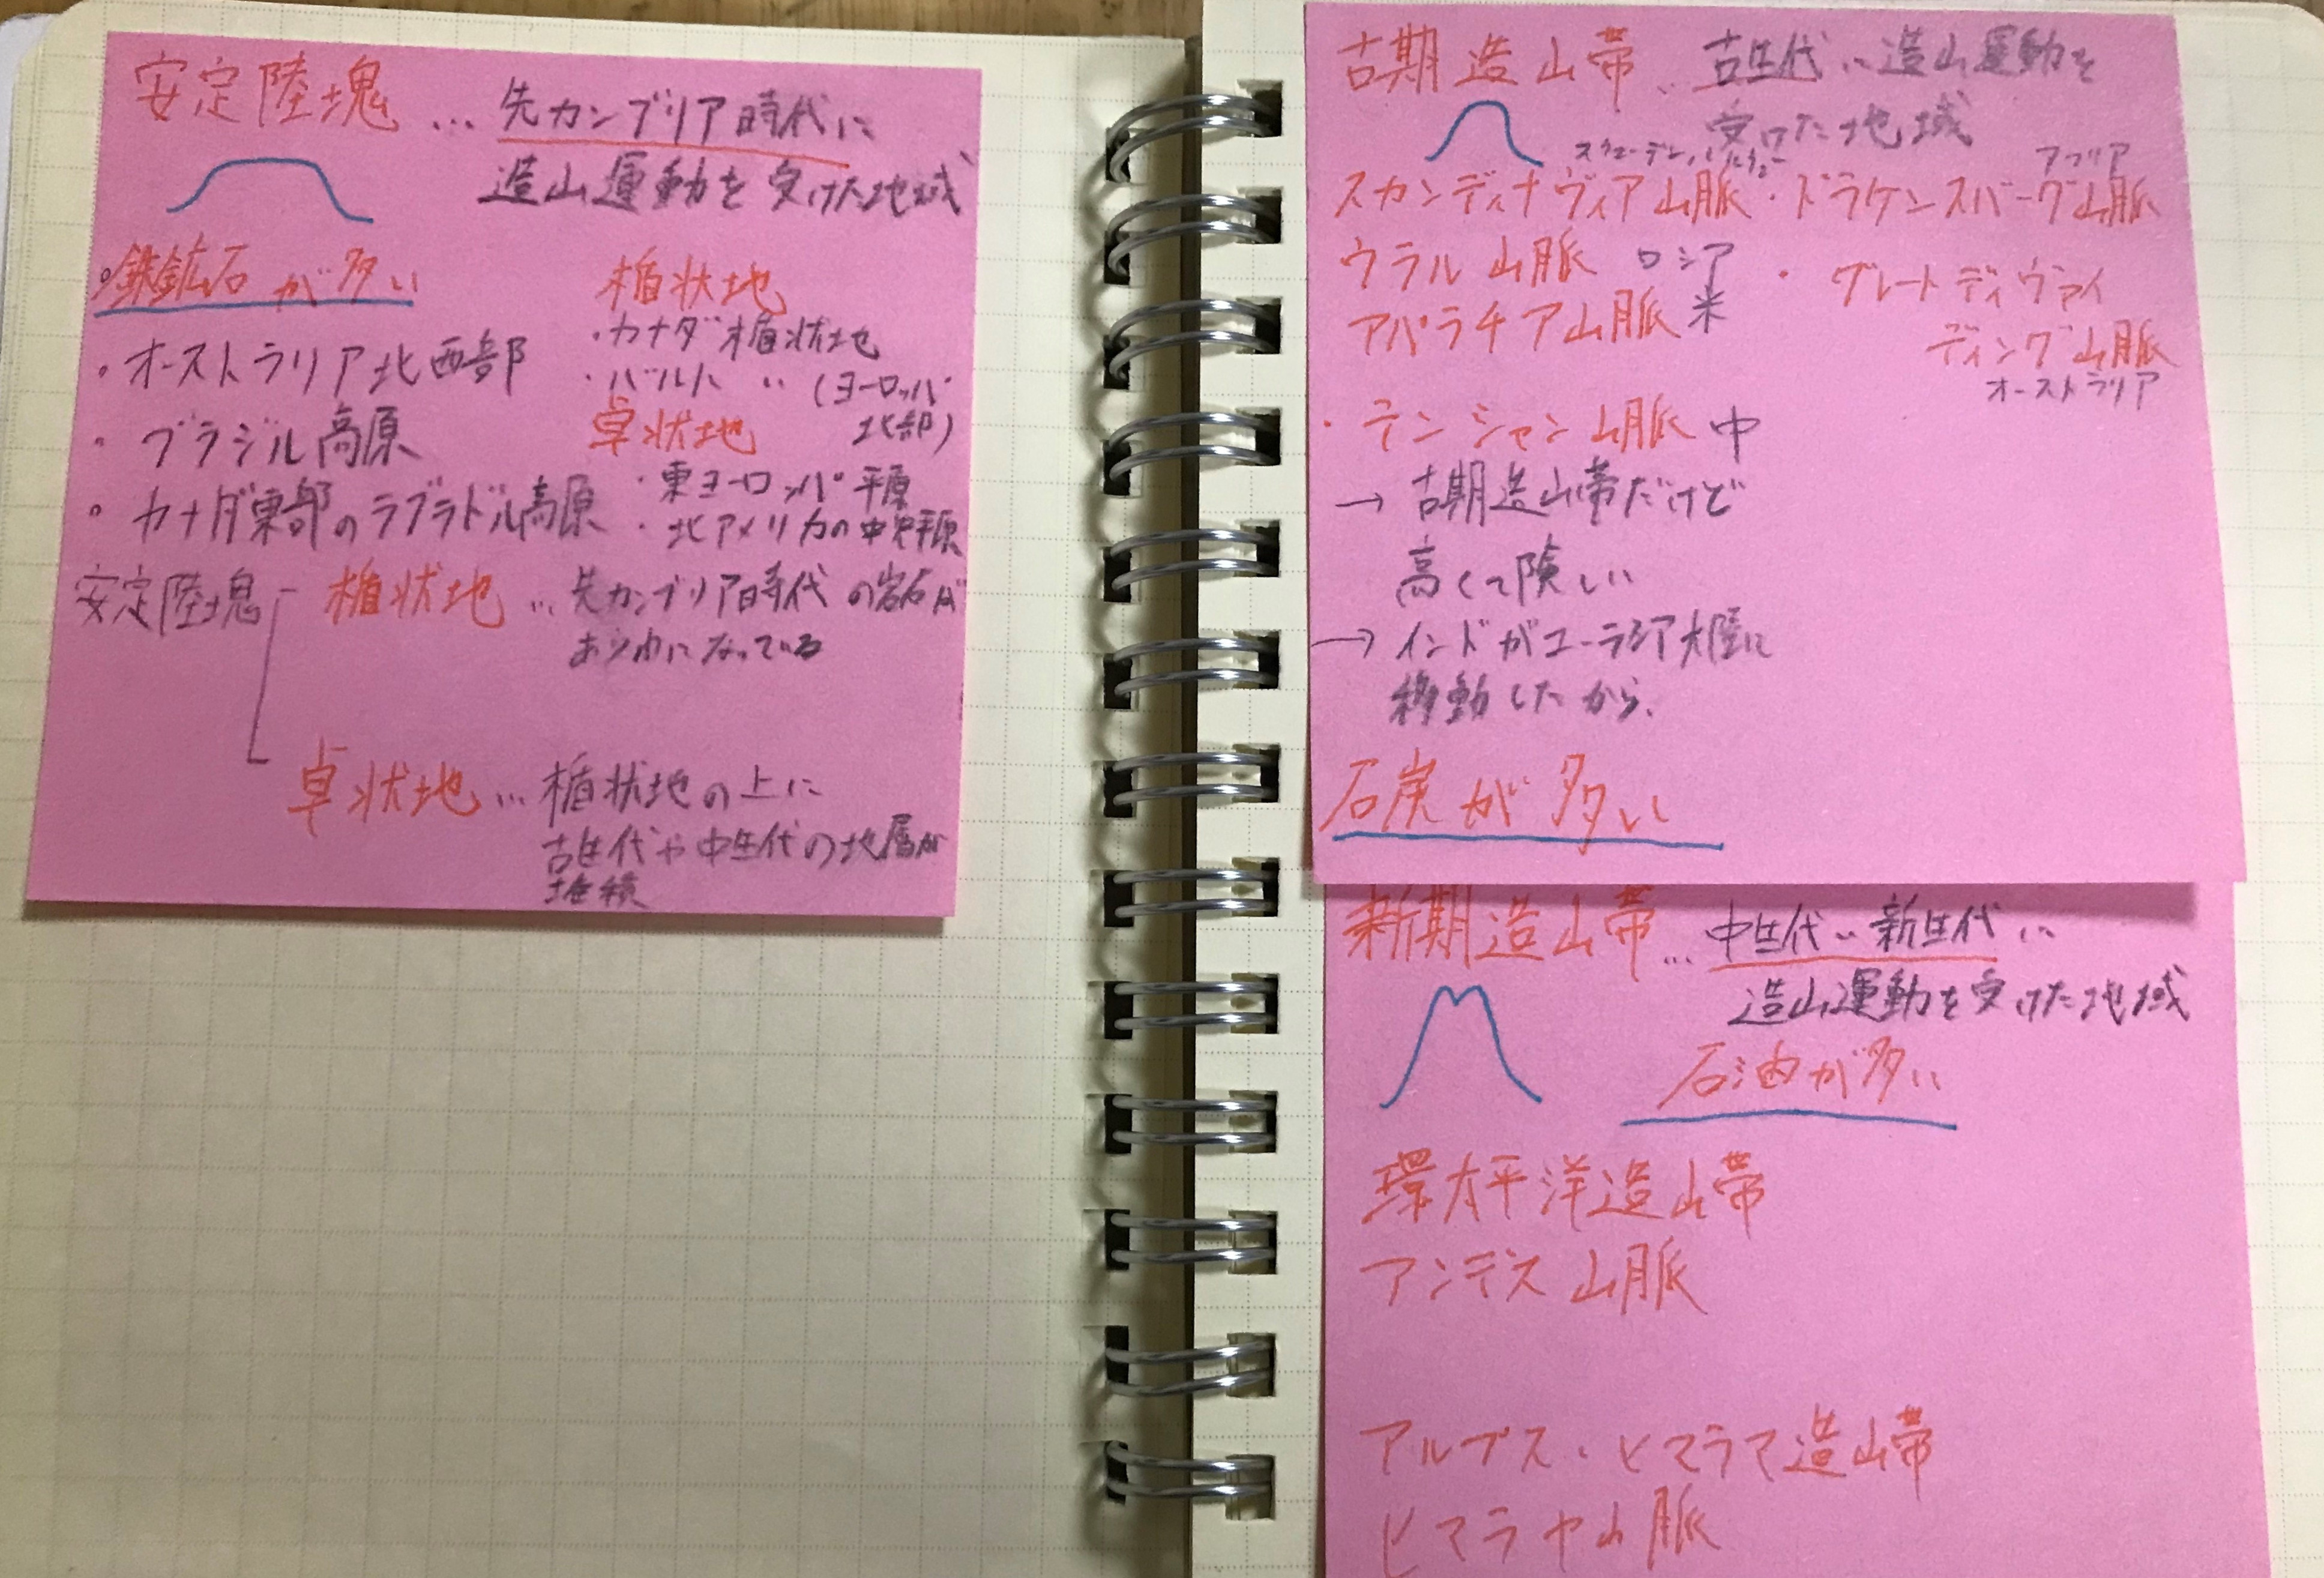 安定陸塊 … 先カンブリア時代に
造山運動を受けた地域
鉄鉱石が多い
・オーストラリア北西部
・ブラジル高原
・カナダ東部のラブラドル高原
楯状地
・カナダ楯状地
・バルト 〃 (ヨーロッパ
北部)
卓状地
・東ヨーロッパ平原
・北アメリカの中央平原
安定陸塊
楯状地 … 先カンブリア時代の岩石が
あらわになっている
卓状地 … 楯状地の上に
古生代や中生代の地層が
堆積
古期造山帯 … 古生代に造山運動を
受けた地域
アフリア
スカンディナヴィア山脈・ドラケンスバーグ山脈
ウラル山脈 ロシア
アパラチア山脈 米
・グレートディヴァイ
ディング山脈
オーストラリア
・テンシャン山脈 中
→ 古期造山帯だけど
高くて険しい
→ インドがユーラシア大陸に
移動したから.
石炭が多い
新期造山帯 … 中生代〜新生代に
造山運動を受けた地域
石油が多い
環太平洋造山帯
アンデス山脈
アルプス・ヒマラマ造山帯
ヒマラヤ山脈